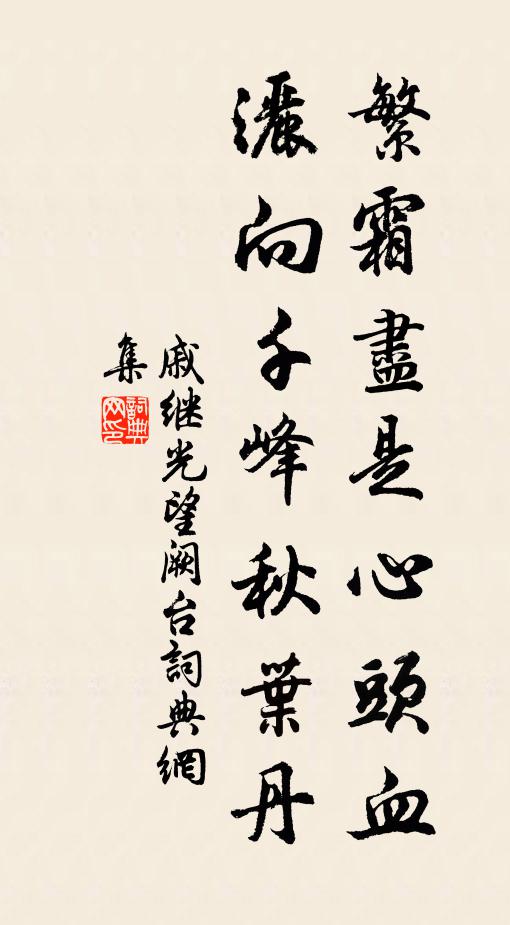 繁霜盡是心頭血
灑向千峰秋葉丹
戚继光望阙台詞典網
集
詞典網印